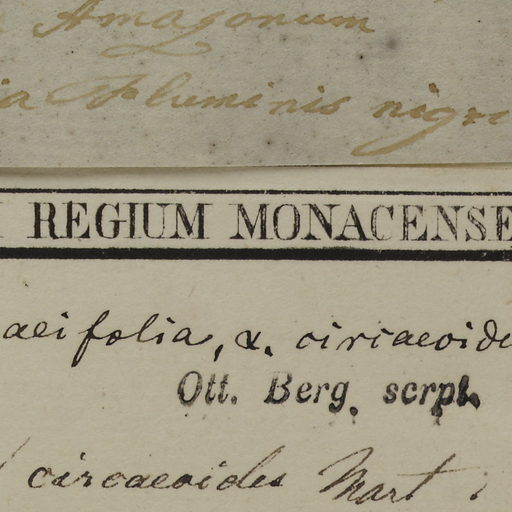 Amazonum
ia Fluminis nigr
REGIUM MONACENSE
aeifolia, α. circaeoide
Ott. Berg. scrpt.
circaeoides Mart